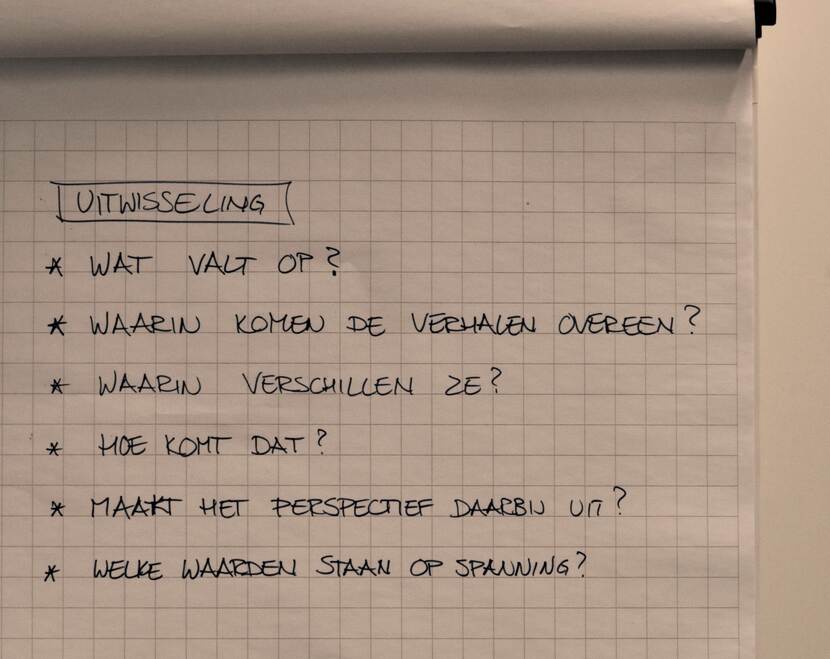 UITWISSELING
* WAT VALT OP?
* WAARIN KOMEN DE VERHALEN OVEREEN?
* WAARIN VERSCHILLEN ZE?
* HOE KOMT DAT?
* MAAKT HET PERSPECTIEF DAARBIJ UIT?
* WELKE WAARDEN STAAN OP SPANNING?